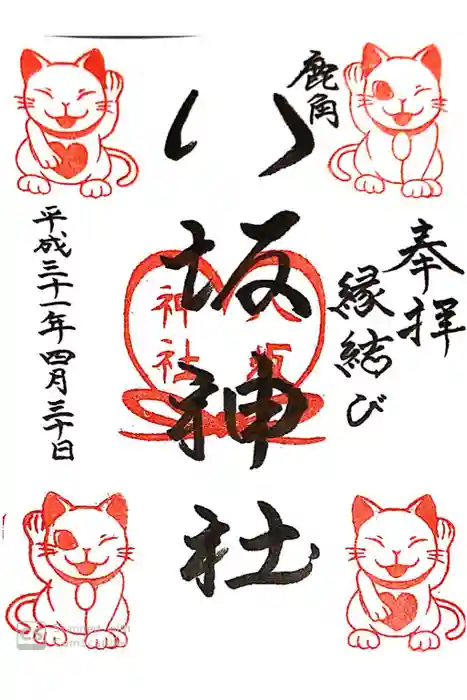 奉拝
縁結び
鹿角
八坂神社
神社
平成三十一年四月三十日
CS
Scanned with
CamScanner